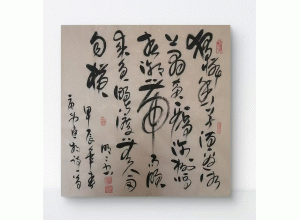 獨憐幽草澗邊生
上有黃鸝深樹鳴
春潮帶雨晚
來急野渡無人舟
自橫
甲辰年春